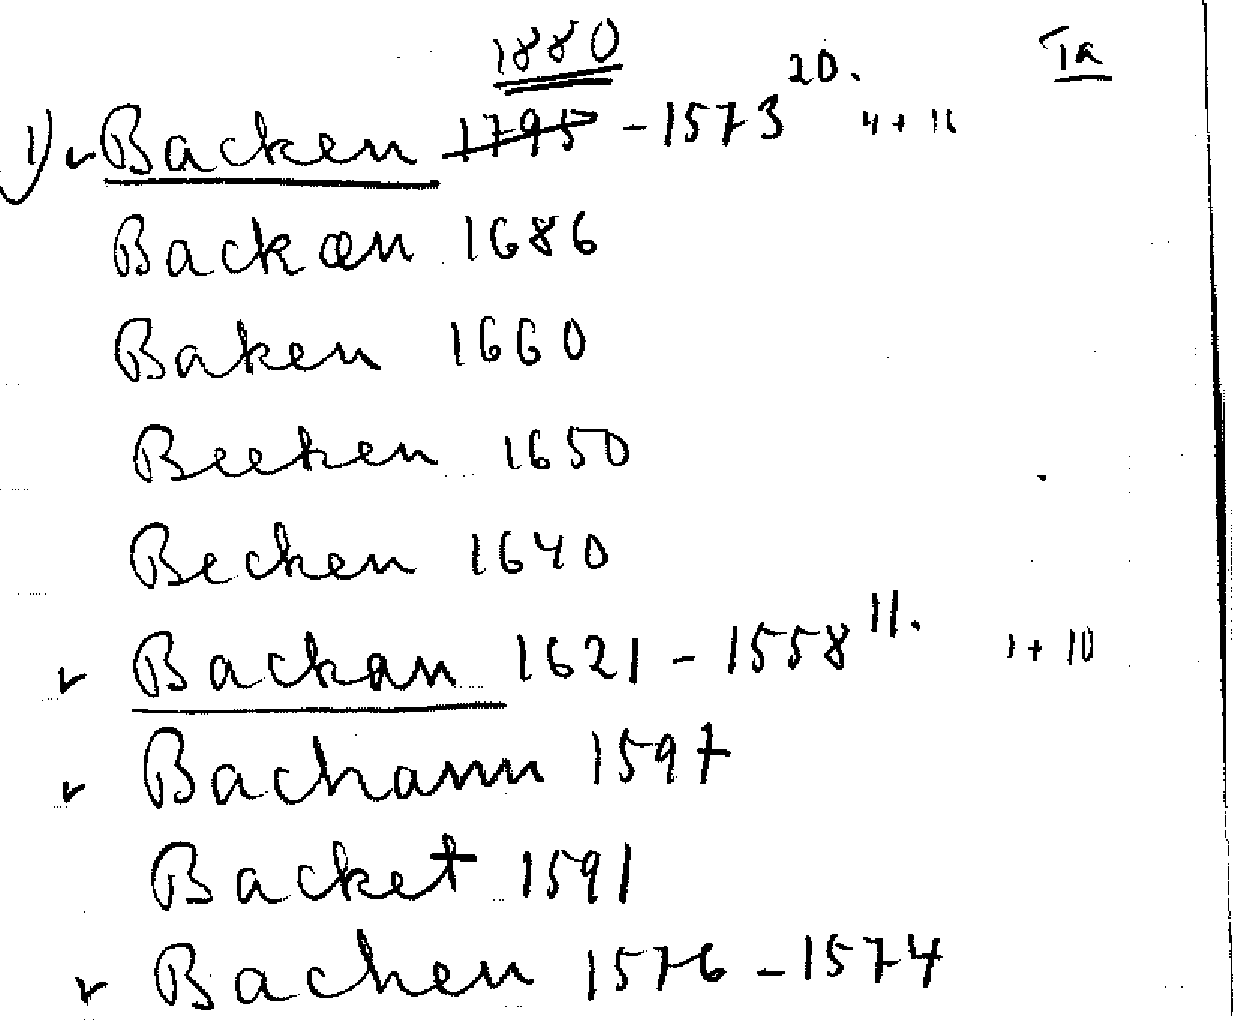 1880
20. Ta
1) v Backen 1795 - 1573 4 + 16
Backæn 1686
Baken 1660
Beeken 1650
Becken 1640
v Backan 1621 - 1558 11. 1 + 10
v Bachann 1597
Backet 1591
v Bachen 1576 - 1574